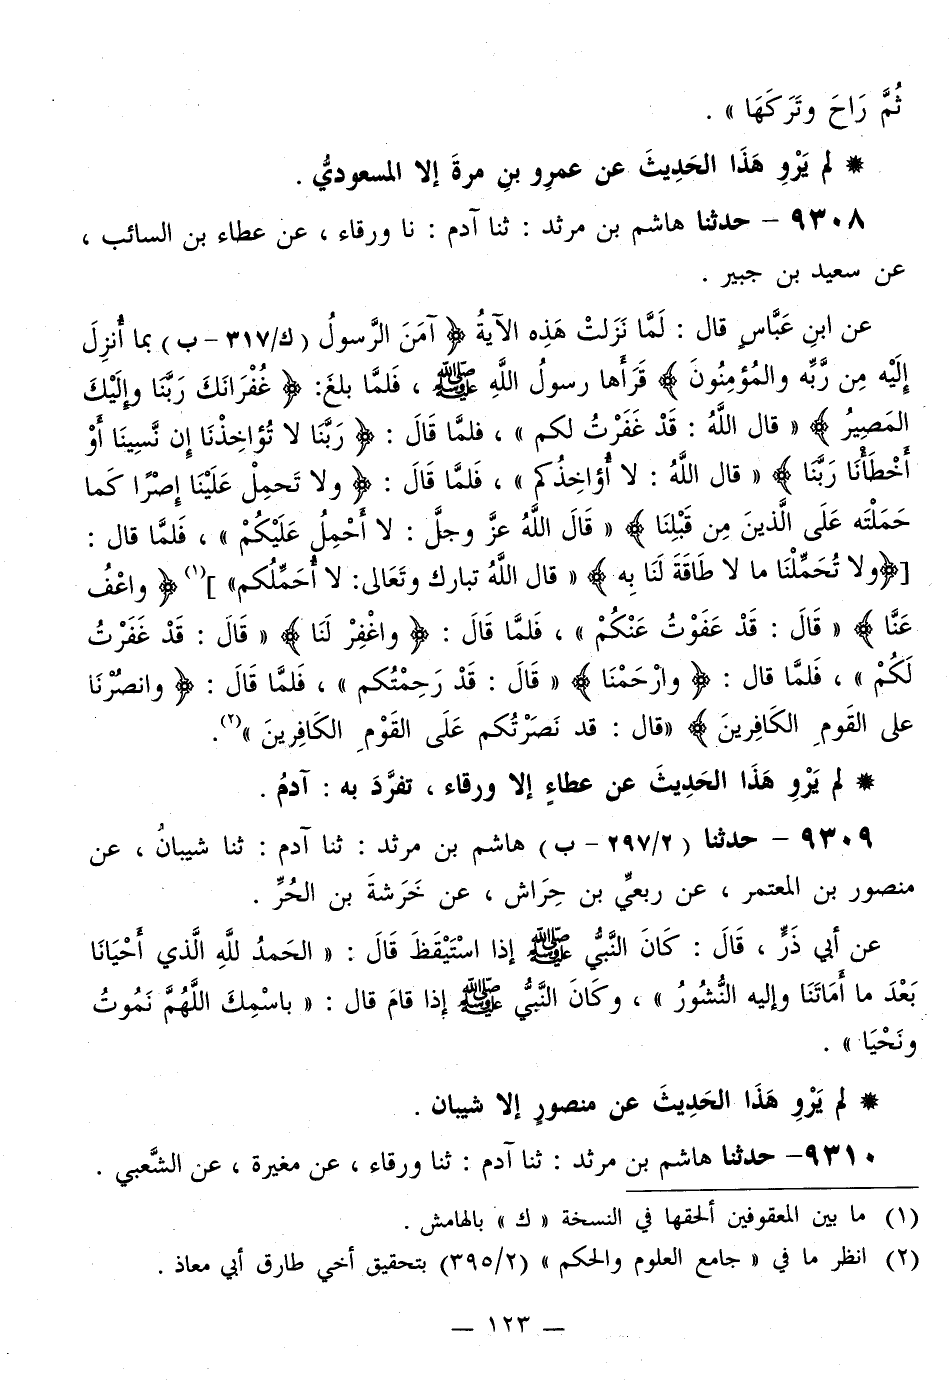 ثُمَّ رَاحَ وتَرَكَهَا » .
* لم يَرْوِ هَذَا الحَدِيثَ عن عمرِو بنِ مرةَ إلا المسعوديُّ .
٩٣٠٨ - حدثنا هاشم بن مرثد : ثنا آدم : نا ورقاء ، عن عطاء بن السائب ،
عن سعيد بن جبير .
عن ابنِ عَبَّاسٍ قال : لَمَّا نَزَلتْ هَذِه الآيةُ ﴿ آمَنَ الرَّسولُ ( ك/٣١٧ - ب ) بما أُنزِلَ
إِلَيْه مِن رَّبِّه والمُؤمِنُونَ ﴾ قَرَأَها رسولُ اللَّهِ ﷺ ، فلمَّا بلغَ: ﴿ غُفْرَانَكَ رَبَّنَا وإِلَيْكَ
المَصِيرُ ﴾ « قال اللَّهُ : قَدْ غَفَرْتُ لكم » ، فلمَّا قَالَ : ﴿ رَبَّنَا لا تُؤاخِذْنَا إِن نَّسِينَا أَوْ
أَخْطَأْنَا رَبَّنَا ﴾ « قال اللَّهُ : لا أُؤاخِذُكم » ، فَلمَّا قَالَ : ﴿ ولا تَحمِلْ عَلَيْنَا إِصْرًا كَما
حَمَلْتَه عَلَى الَّذينَ مِن قَبْلِنَا ﴾ « قَالَ اللَّهُ عزَّ وجلَّ : لا أَحْمِلُ عَلَيْكُمْ » ، فَلمَّا قال :
[﴿ولا تُحَمِّلْنَا ما لا طَاقَةَ لَنَا بِه ﴾ « قال اللَّهُ تبارك وتَعَالى: لا أُحَمِّلُكم» ](١) ﴿ واعْفُ
عَنَّا ﴾ « قَالَ : قَدْ عَفَوْتُ عَنْكُمْ » ، فَلمَّا قَالَ : ﴿ واغْفِرْ لَنَا ﴾ « قَالَ : قَدْ غَفَرْتُ
لَكُمْ » ، فَلمَّا قال : ﴿ وارْحَمْنَا ﴾ « قَالَ : قَدْ رَحِمْتُكم » ، فَلمَّا قَالَ : ﴿ وانصُرْنَا
على القَومِ الكَافِرِينَ ﴾ «قال : قد نَصَرْتُكم عَلَى القَوْمِ الكَافِرِينَ »(٢).
* لم يَرْوِ هَذَا الحَدِيثَ عن عطاءٍ إلا ورقاء ، تفرَّدَ به : آدمُ .
٩٣٠٩ - حدثنا ( ٢٩٧/٢ - ب ) هاشم بن مرثد : ثنا آدم : ثنا شيبانُ ، عن
منصور بن المعتمر ، عن ربعيِّ بن حِرَاش ، عن خَرَشةَ بن الحُرِّ .
عن أبي ذَرٍّ ، قَالَ : كَانَ النَّبيُّ ﷺ إذا اسْتَيْقَظَ قَالَ : « الحَمدُ للَّهِ الَّذي أَحْيَانَا
بَعْدَ ما أَمَاتَنَا وإليه النُّشُورُ » ، وكَانَ النَّبيُّ ﷺ إذا قامَ قال : « باسْمِكَ اللَّهُمَّ نَمُوتُ
ونَحْيَا » .
* لم يَرْوِ هَذَا الحَدِيثَ عن منصورٍ إلا شيبان .
٩٣١٠- حدثنا هاشم بن مرثد : ثنا آدم : ثنا ورقاء ، عن مغيرة ، عن الشَّعبي .
(١) ما بين المعقوفين ألحقها في النسخة « ك » بالهامش .
(٢) انظر ما في « جامع العلوم والحكم » (٣٩٥/٢) بتحقيق أخي طارق أبي معاذ .
— ١٢٣ —